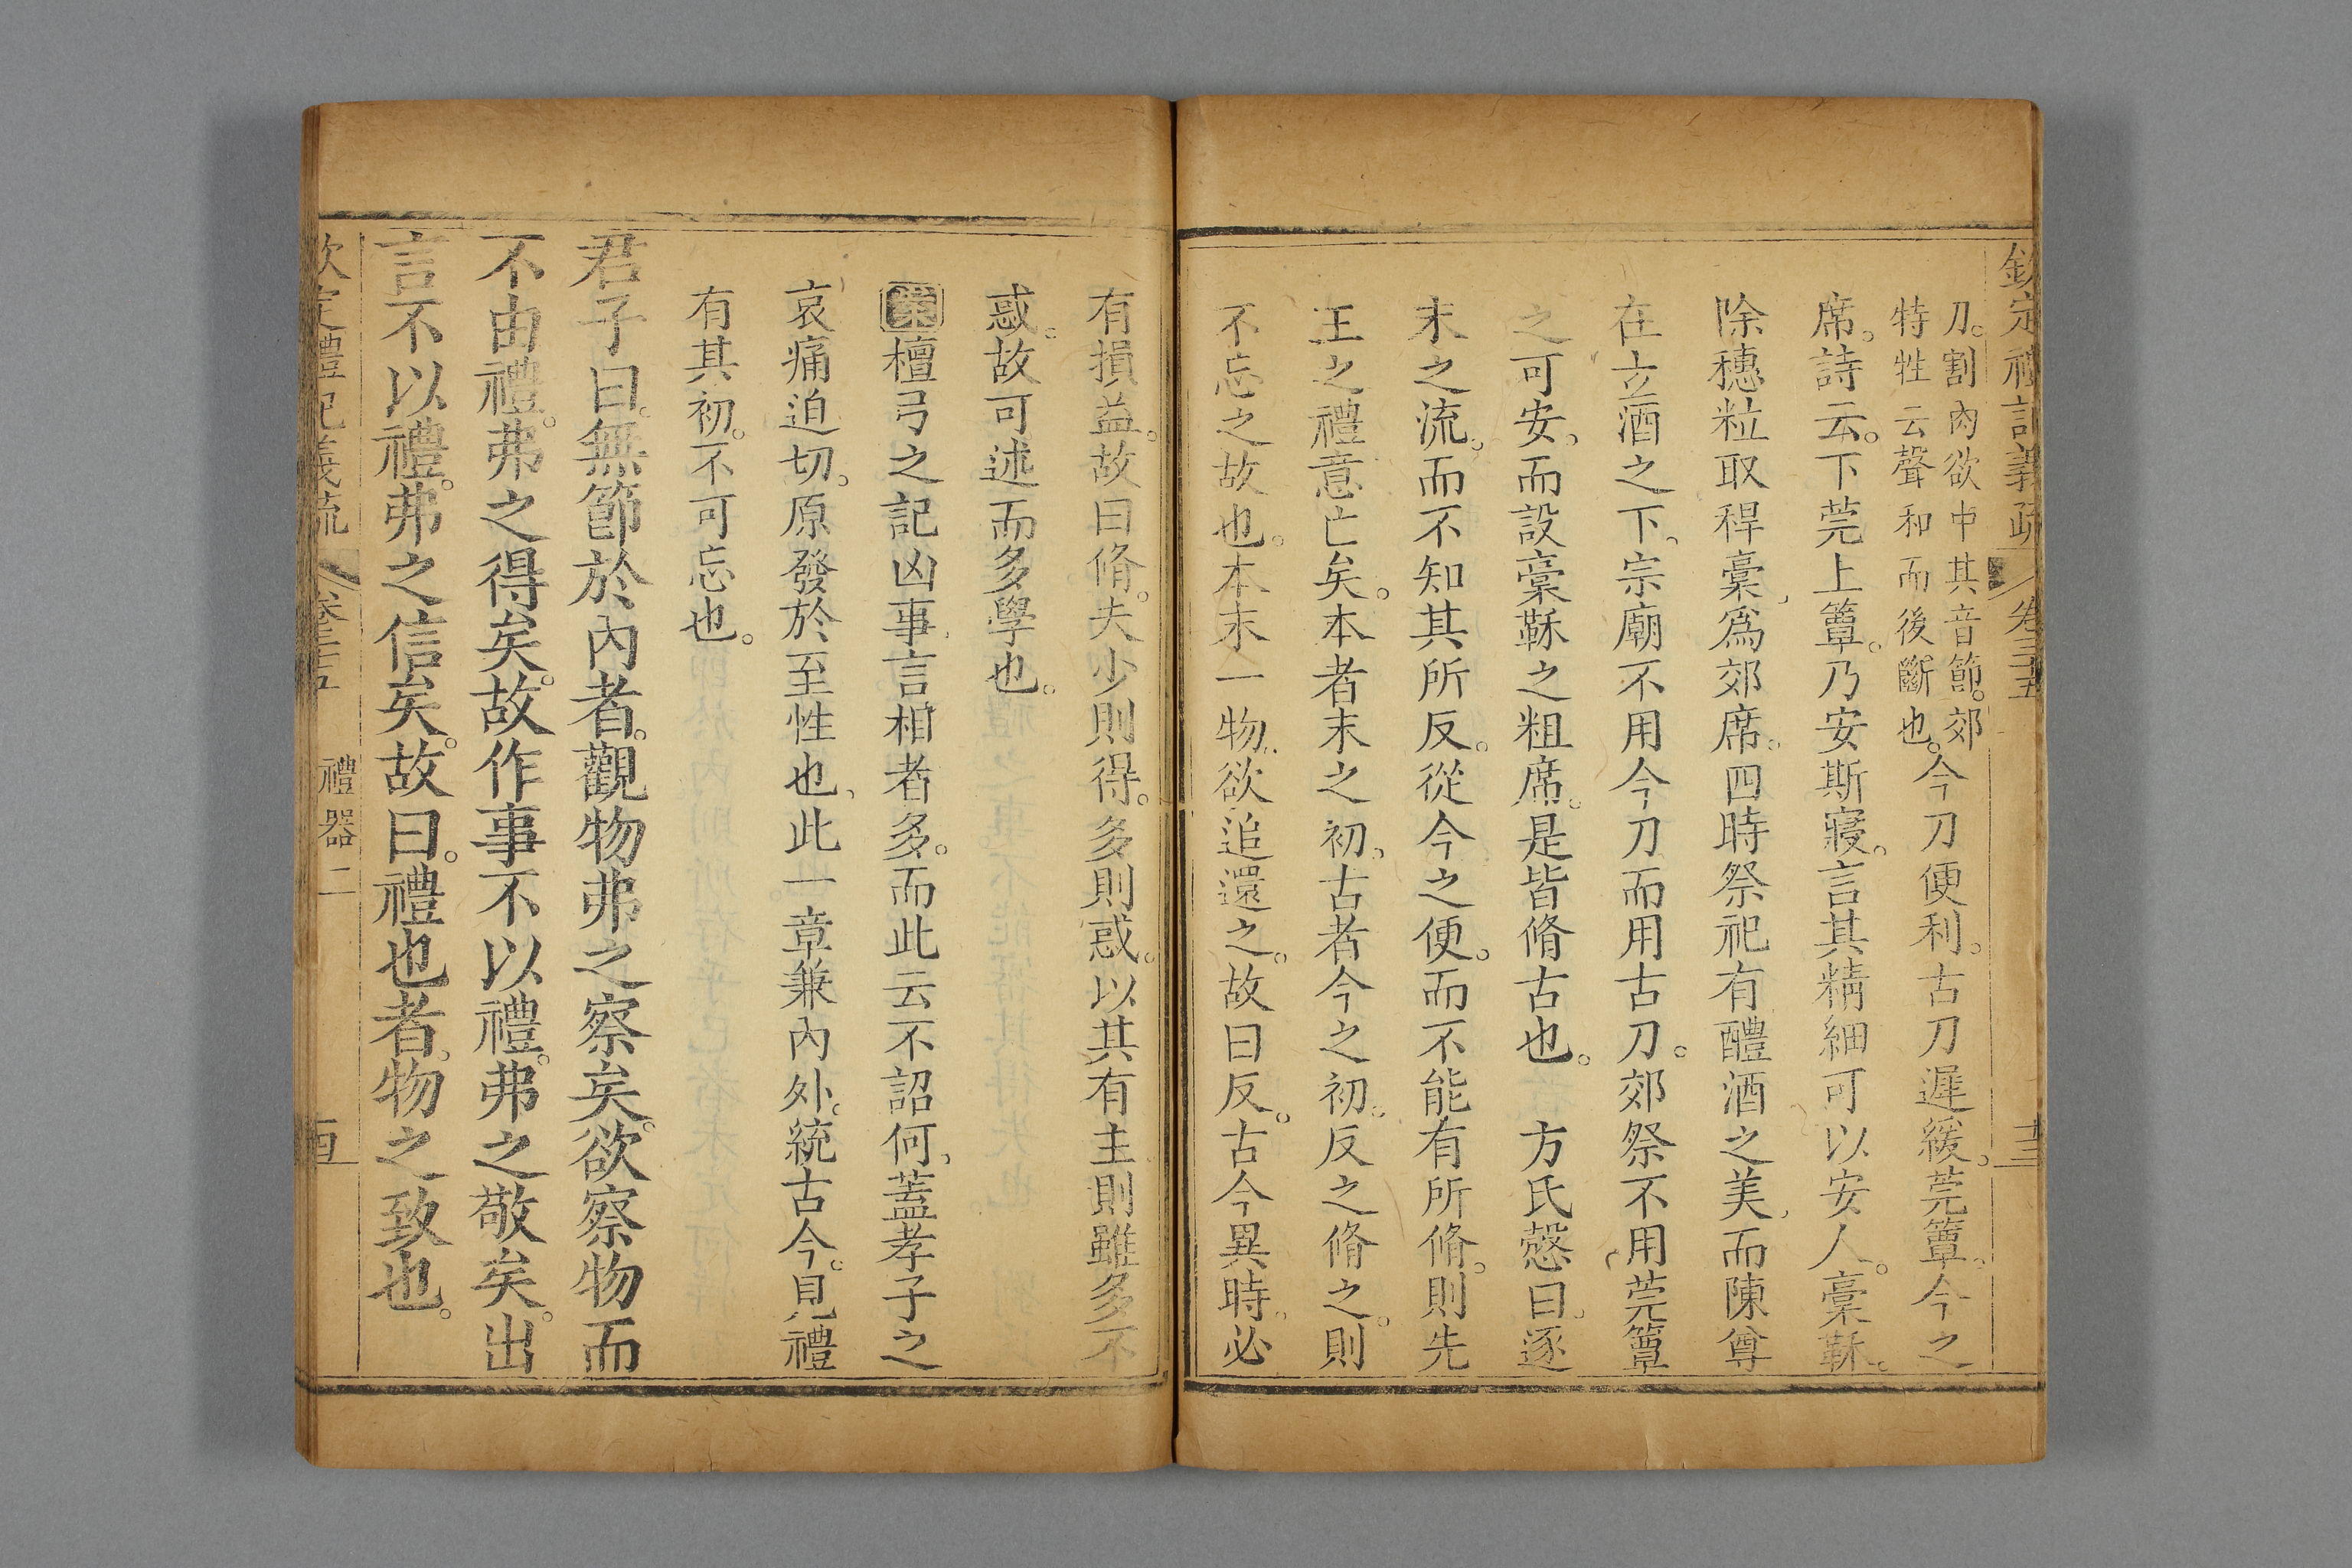 欽定禮記義疏 卷三十五 十三
刀。割肉欲中其音節。郊
特牲云聲和而後斷也。今刀便利。古刀遲緩。莞簟。今之
席。詩云。下莞上簟。乃安斯寢。言其精細可以安人。稾鞂。
除穗粒取稈稾爲郊席。四時祭祀有醴酒之美。而陳尊
在立酒之下、宗廟不用今刀而用古刀。郊祭不用莞簟
之可安。而設稾鞂之粗席。是皆脩古也。 方氏慤曰。逐
末之流。而不知其所反。從今之便。而不能有所脩。則先
王之禮意亡矣。本者末之初、古者今之初。反之脩之。則
不忘之故也。本末一物。欲追還之。故曰反。古今異時。必
有損益。故曰脩。夫少則得。多則惑。以其有主則雖多不
惑。故可述而多學也。
案檀弓之記凶事、言相者多。而此云不詔何、蓋孝子之
哀痛迫切。原發於至性也、此一章兼內外。統古今。見禮
有其初。不可忘也。
君子曰。無節於內者。觀物弗之察矣。欲察物而
不由禮。弗之得矣。故作事不以禮。弗之敬矣。出
言不以禮。弗之信矣。故曰。禮也者。物之致也。
欽定禮記義疏 卷三十五 禮器二